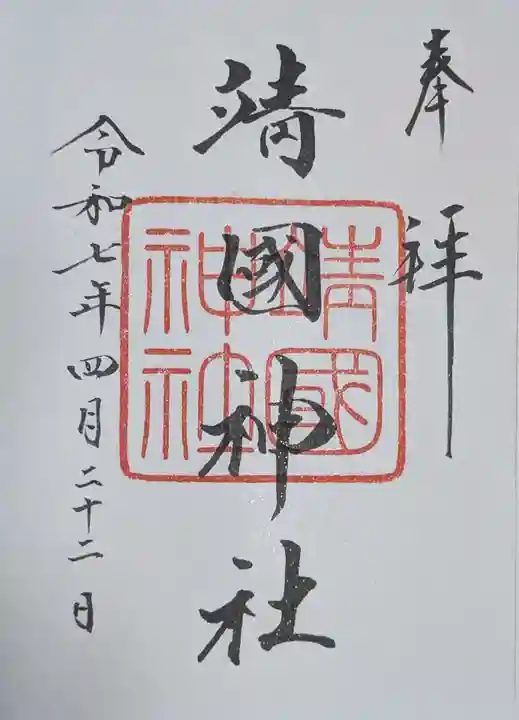 奉拝
靖國神社
靖國
神社
令和七年四月二十二日